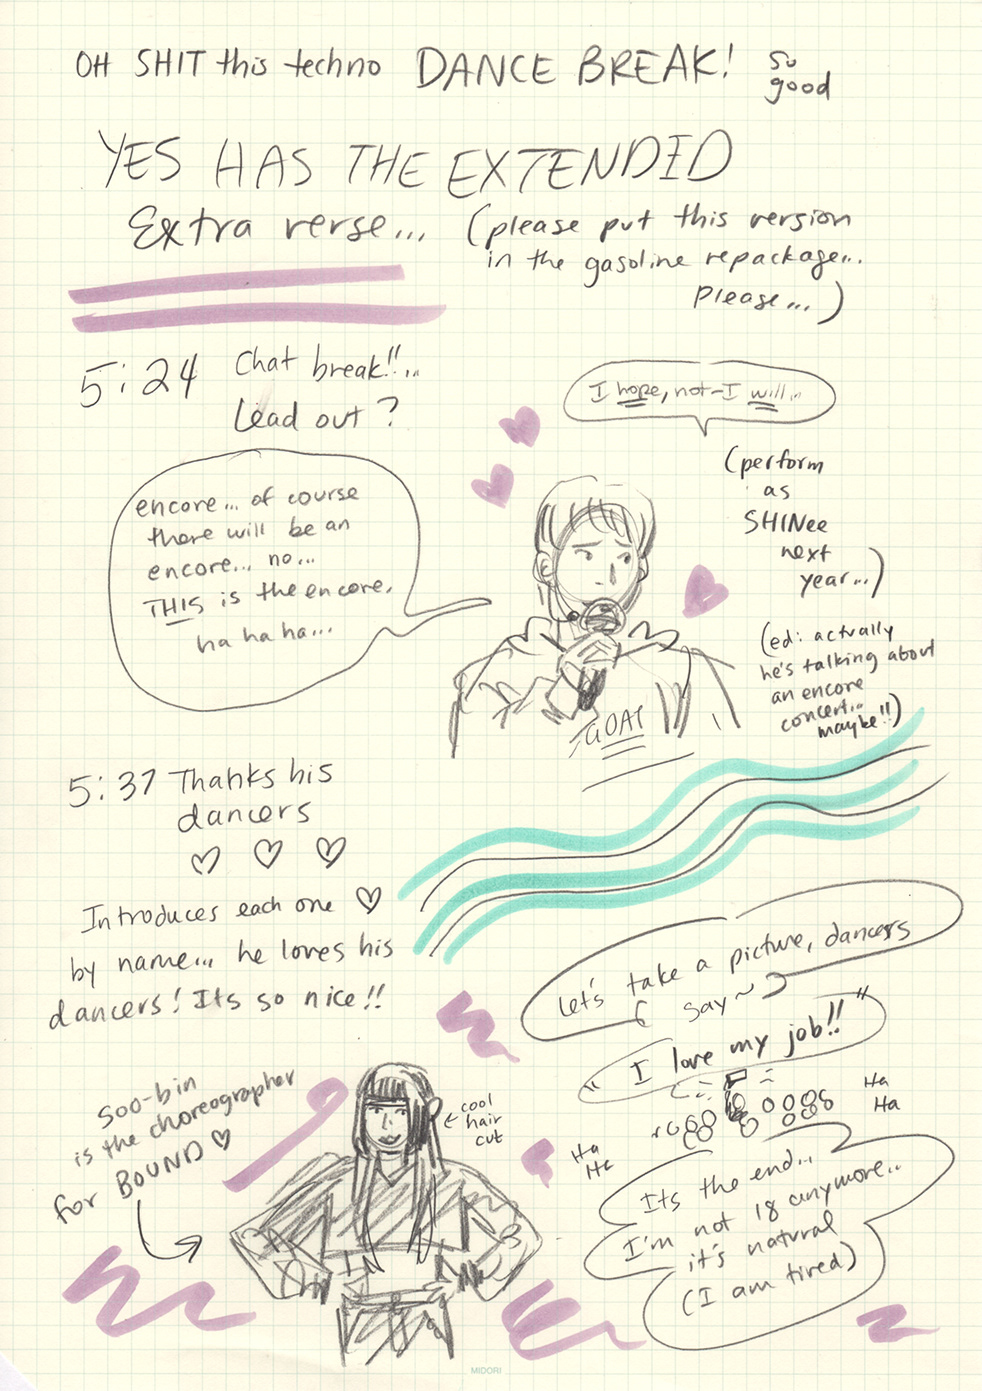 OH SHIT this techno DANCE BREAK! so
good
YES HAS THE EXTENDED
Extra verse... (please put this version
in the gasoline repackage...
Please...)
5:24 Chat break!!...
Lead out?
I hope, not - I will..
(perform
as
SHINee
next
year...)
encore... of course
there will be an
encore... no...
THIS is the encore.
ha ha ha...
GOAT
(ed: actually
he's talking about
an encore
concert...
maybe!!)
5:37 Thanks his
dancers
Introduces each one
by name... he loves his
dancers! Its so nice!!
Let's take a picture, dancers
say~
"I love my job!!"
Ha
Ha
Ha
Ha
Soo-bin
is the choreographer
for BOUND
cool
hair
cut
Its the end...
I'm not 18 anymore..
it's natural
(I am tired)
MIDORI